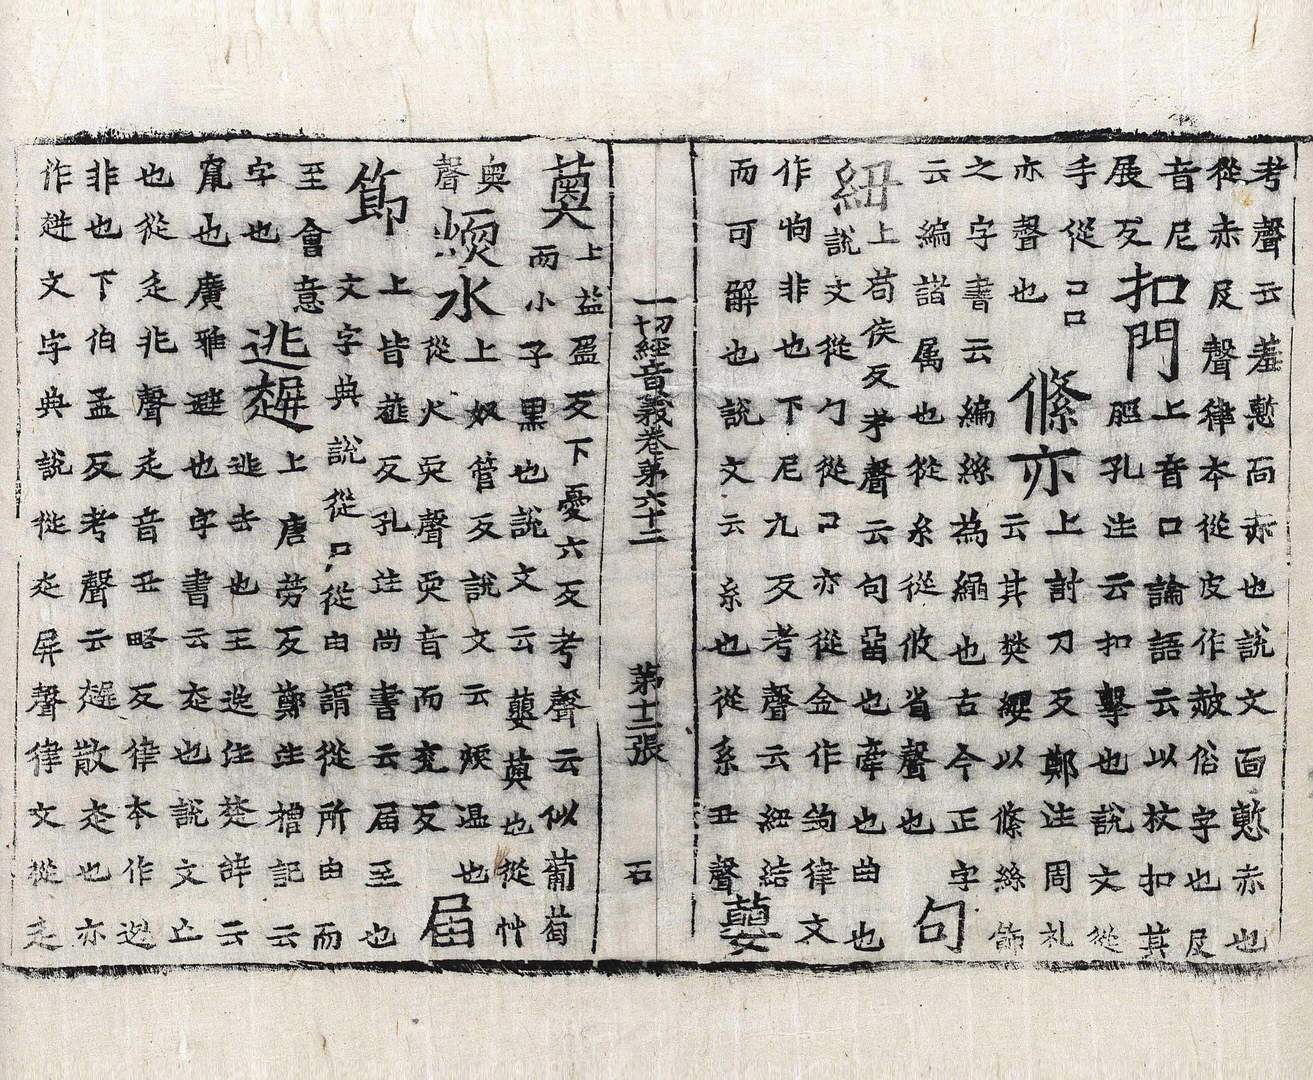 考聲云羞慙而亦也說文面慙赤也
從赤𠬝聲律本從皮作赧俗字也𠬝
音尼
展反
扣門
上音口論語云以杖扣其
脛孔注云扣擊也說文從
手從口口
亦聲也
絛亦
上討刀反鄭注周礼
云其樊纓以絛絲飾
之字書云編絲為繩也古今正字
云編諸属也從糸從攸省聲也
句
紐
上苟侯反考聲云句曲也牽也曲也
說文從勹從口亦從金作鉤律文
作怐非也下尼九反考聲云紐結
而可解也說文云系也從系丑聲
蘡
一切經音義卷苐六十二 苐十二張 石
薁
上益盈反下憂六反考聲云似葡萄
而小子黑也說文云蘡薁也從艸
奥
聲
煗水
上奴管反說文云煗温也
從火耎聲耎音而兖反
届
節
上皆薤反孔注尚書云届至也
文字典說從尸從由謂從所由而
至會意
字也
逃
上唐勞反鄭注禮記云
逃去也王逸注楚辞云
竄也廣雅避也字書云逃也說文亡
也從辵兆聲辵音丑略反律本作逃
非也下伯孟反考聲云散走也亦
作迸文字典說從辵屏聲律文從走